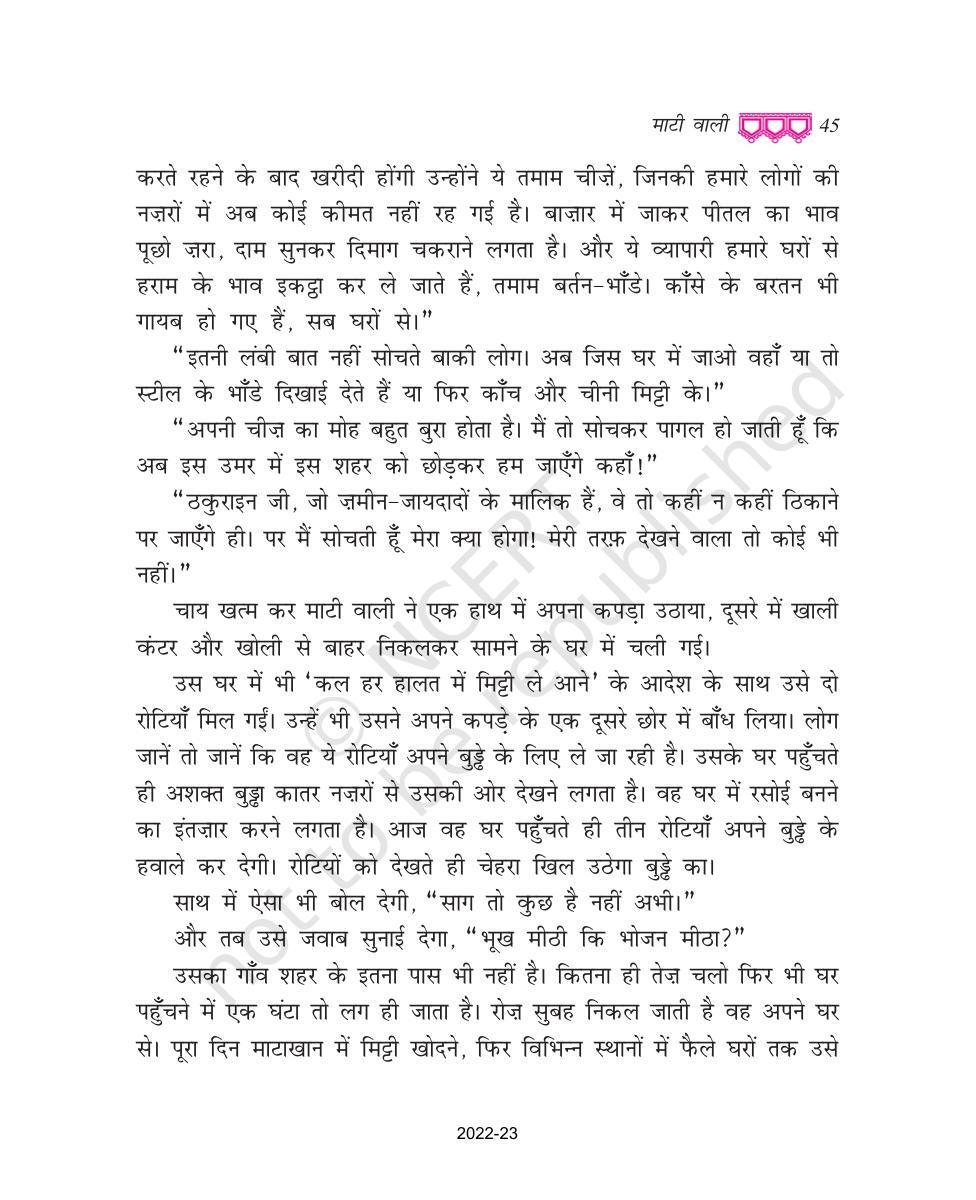 माटी वाली 45
करते रहने के बाद खरीदी होंगी उन्होंने ये तमाम चीज़ें, जिनकी हमारे लोगों की
नज़रों में अब कोई कीमत नहीं रह गई है। बाज़ार में जाकर पीतल का भाव
पूछो ज़रा, दाम सुनकर दिमाग चकराने लगता है। और ये व्यापारी हमारे घरों से
हराम के भाव इकट्ठा कर ले जाते हैं, तमाम बर्तन-भाँडे। काँसे के बरतन भी
गायब हो गए हैं, सब घरों से।”
“इतनी लंबी बात नहीं सोचते बाकी लोग। अब जिस घर में जाओ वहाँ या तो
स्टील के भाँडे दिखाई देते हैं या फिर काँच और चीनी मिट्टी के।”
“अपनी चीज़ का मोह बहुत बुरा होता है। मैं तो सोचकर पागल हो जाती हूँ कि
अब इस उमर में इस शहर को छोड़कर हम जाएँगे कहाँ!”
“ठकुराइन जी, जो ज़मीन-जायदादों के मालिक हैं, वे तो कहीं न कहीं ठिकाने
पर जाएँगे ही। पर मैं सोचती हूँ मेरा क्या होगा! मेरी तरफ़ देखने वाला तो कोई भी
नहीं।”
चाय खत्म कर माटी वाली ने एक हाथ में अपना कपड़ा उठाया, दूसरे में खाली
कंटर और खोली से बाहर निकलकर सामने के घर में चली गई।
उस घर में भी ‘कल हर हालत में मिट्टी ले आने’ के आदेश के साथ उसे दो
रोटियाँ मिल गईं। उन्हें भी उसने अपने कपड़े के एक दूसरे छोर में बाँध लिया। लोग
जानें तो जानें कि वह ये रोटियाँ अपने बुड्ढे के लिए ले जा रही है। उसके घर पहुँचते
ही अशक्त बुड्ढा कातर नज़रों से उसकी ओर देखने लगता है। वह घर में रसोई बनने
का इंतज़ार करने लगता है। आज वह घर पहुँचते ही तीन रोटियाँ अपने बुड्ढे के
हवाले कर देगी। रोटियों को देखते ही चेहरा खिल उठेगा बुड्ढे का।
साथ में ऐसा भी बोल देगी, “साग तो कुछ है नहीं अभी।”
और तब उसे जवाब सुनाई देगा, “भूख मीठी कि भोजन मीठा?”
उसका गाँव शहर के इतना पास भी नहीं है। कितना ही तेज़ चलो फिर भी घर
पहुँचने में एक घंटा तो लग ही जाता है। रोज़ सुबह निकल जाती है वह अपने घर
से। पूरा दिन माटाखान में मिट्टी खोदने, फिर विभिन्न स्थानों में फैले घरों तक उसे
© NCERT
not to be republished
2022-23